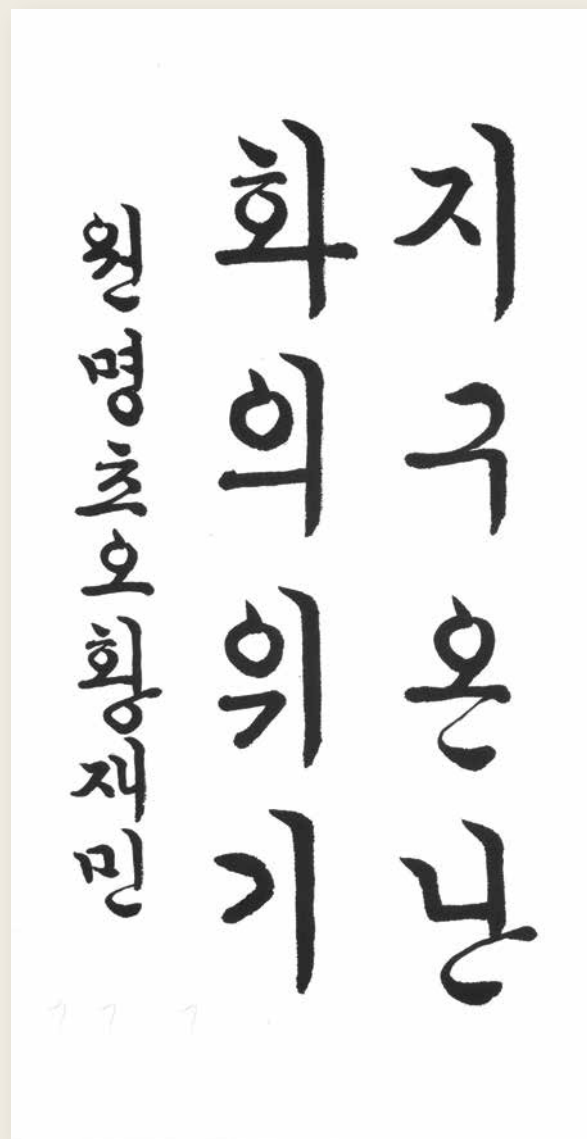 지구온난
화의위기
원명초오황재민